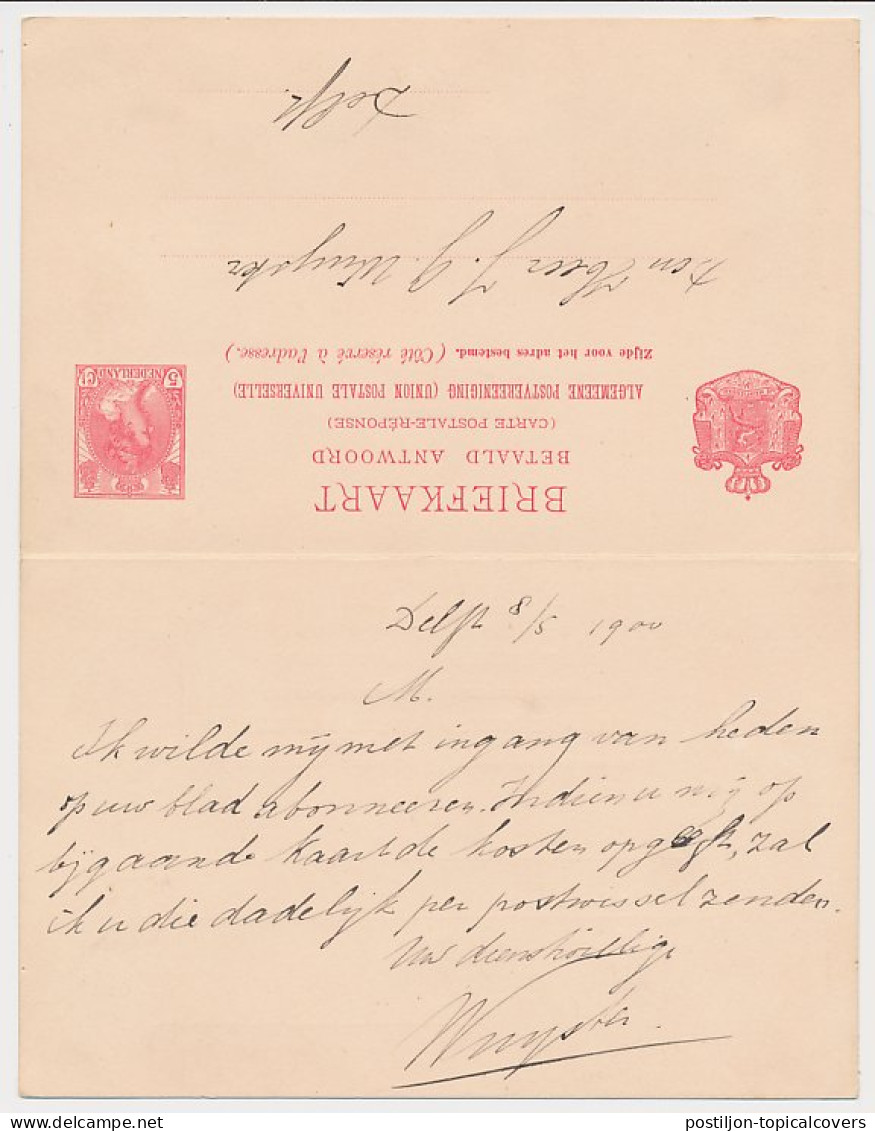 Delft.
Den Heer J. J.
Zijde voor het adres bestemd. (Côté réservé à l'adresse.)
ALGEMEENE POSTVEREENIGING (UNION POSTALE UNIVERSELLE)
(CARTE POSTALE-RÉPONSE)
BETAALD ANTWOORD
BRIEFKAART
NEDERLAND
5 Ct
Delft 8/5 1900
M.
Ik wilde mij met ingang van heden
op uw blad abonneeren. Indien u mij op
bijgaande kaart de kosten opgeeft, zal
ik u die dadelijk per postwissel zenden.
Uw dienstwillige
postiljon-topicalcovers
delcampe.net